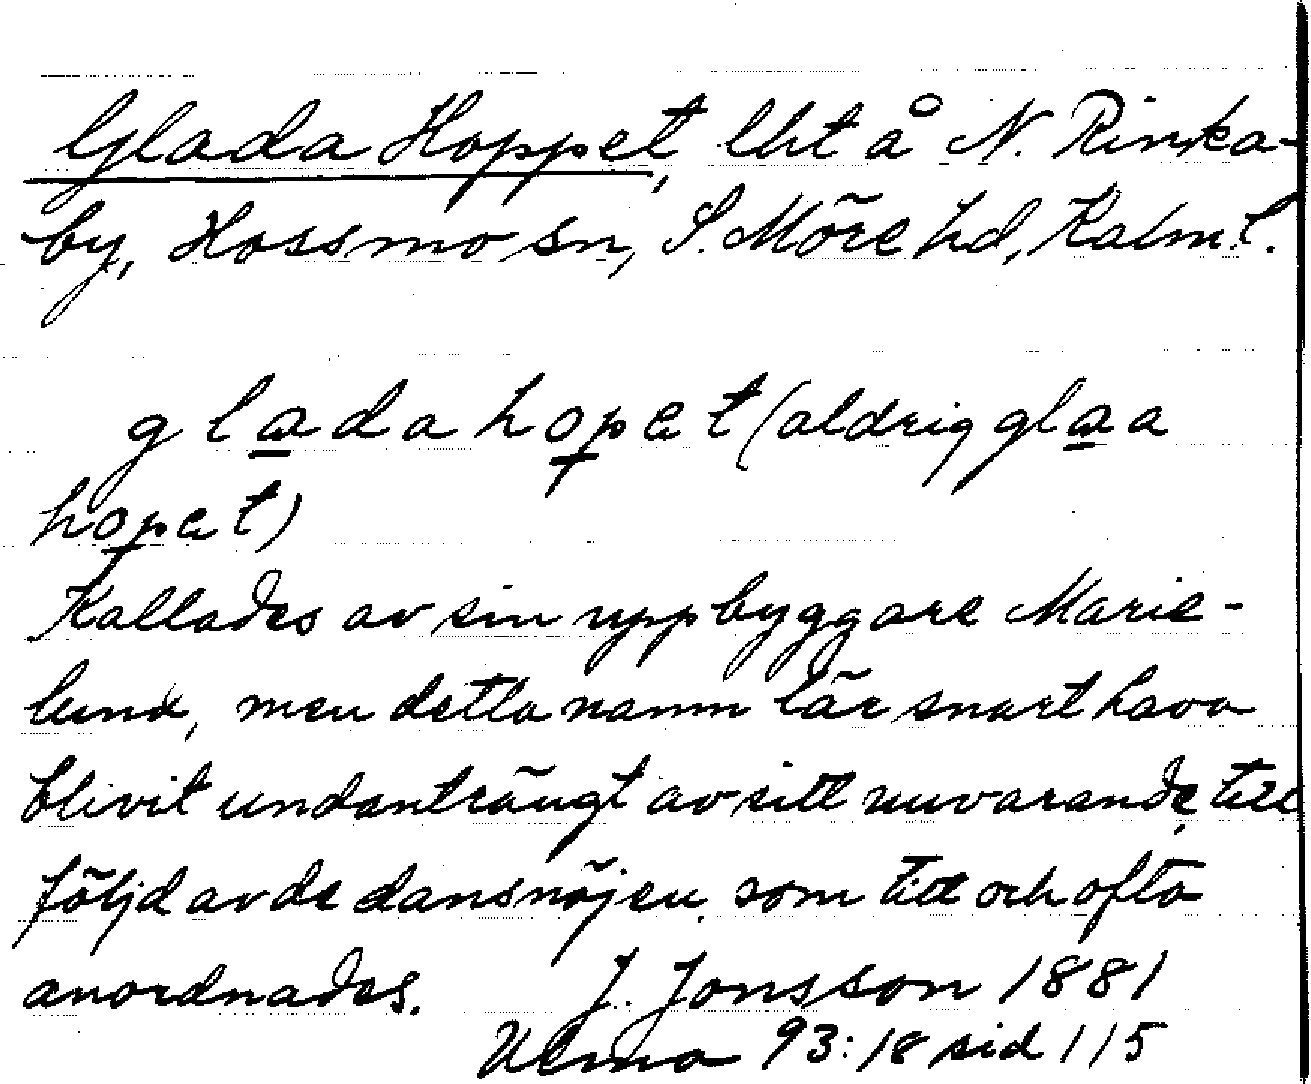 Glada Hoppet, lht å N. Rinka-
by, Hossmo sn, S. Möre hd, Kalm. l.
glada hopet (aldrig glaa
hopet)
Kallades av sin uppbyggare Marie-
lund, men detta namn lär snart hava
blivit undanträngt av sitt nuvarande, till
följd av de dansnöjen, som titt och ofta
anordnades. J. Jonsson 1881
Ulma 93:18 sid 115